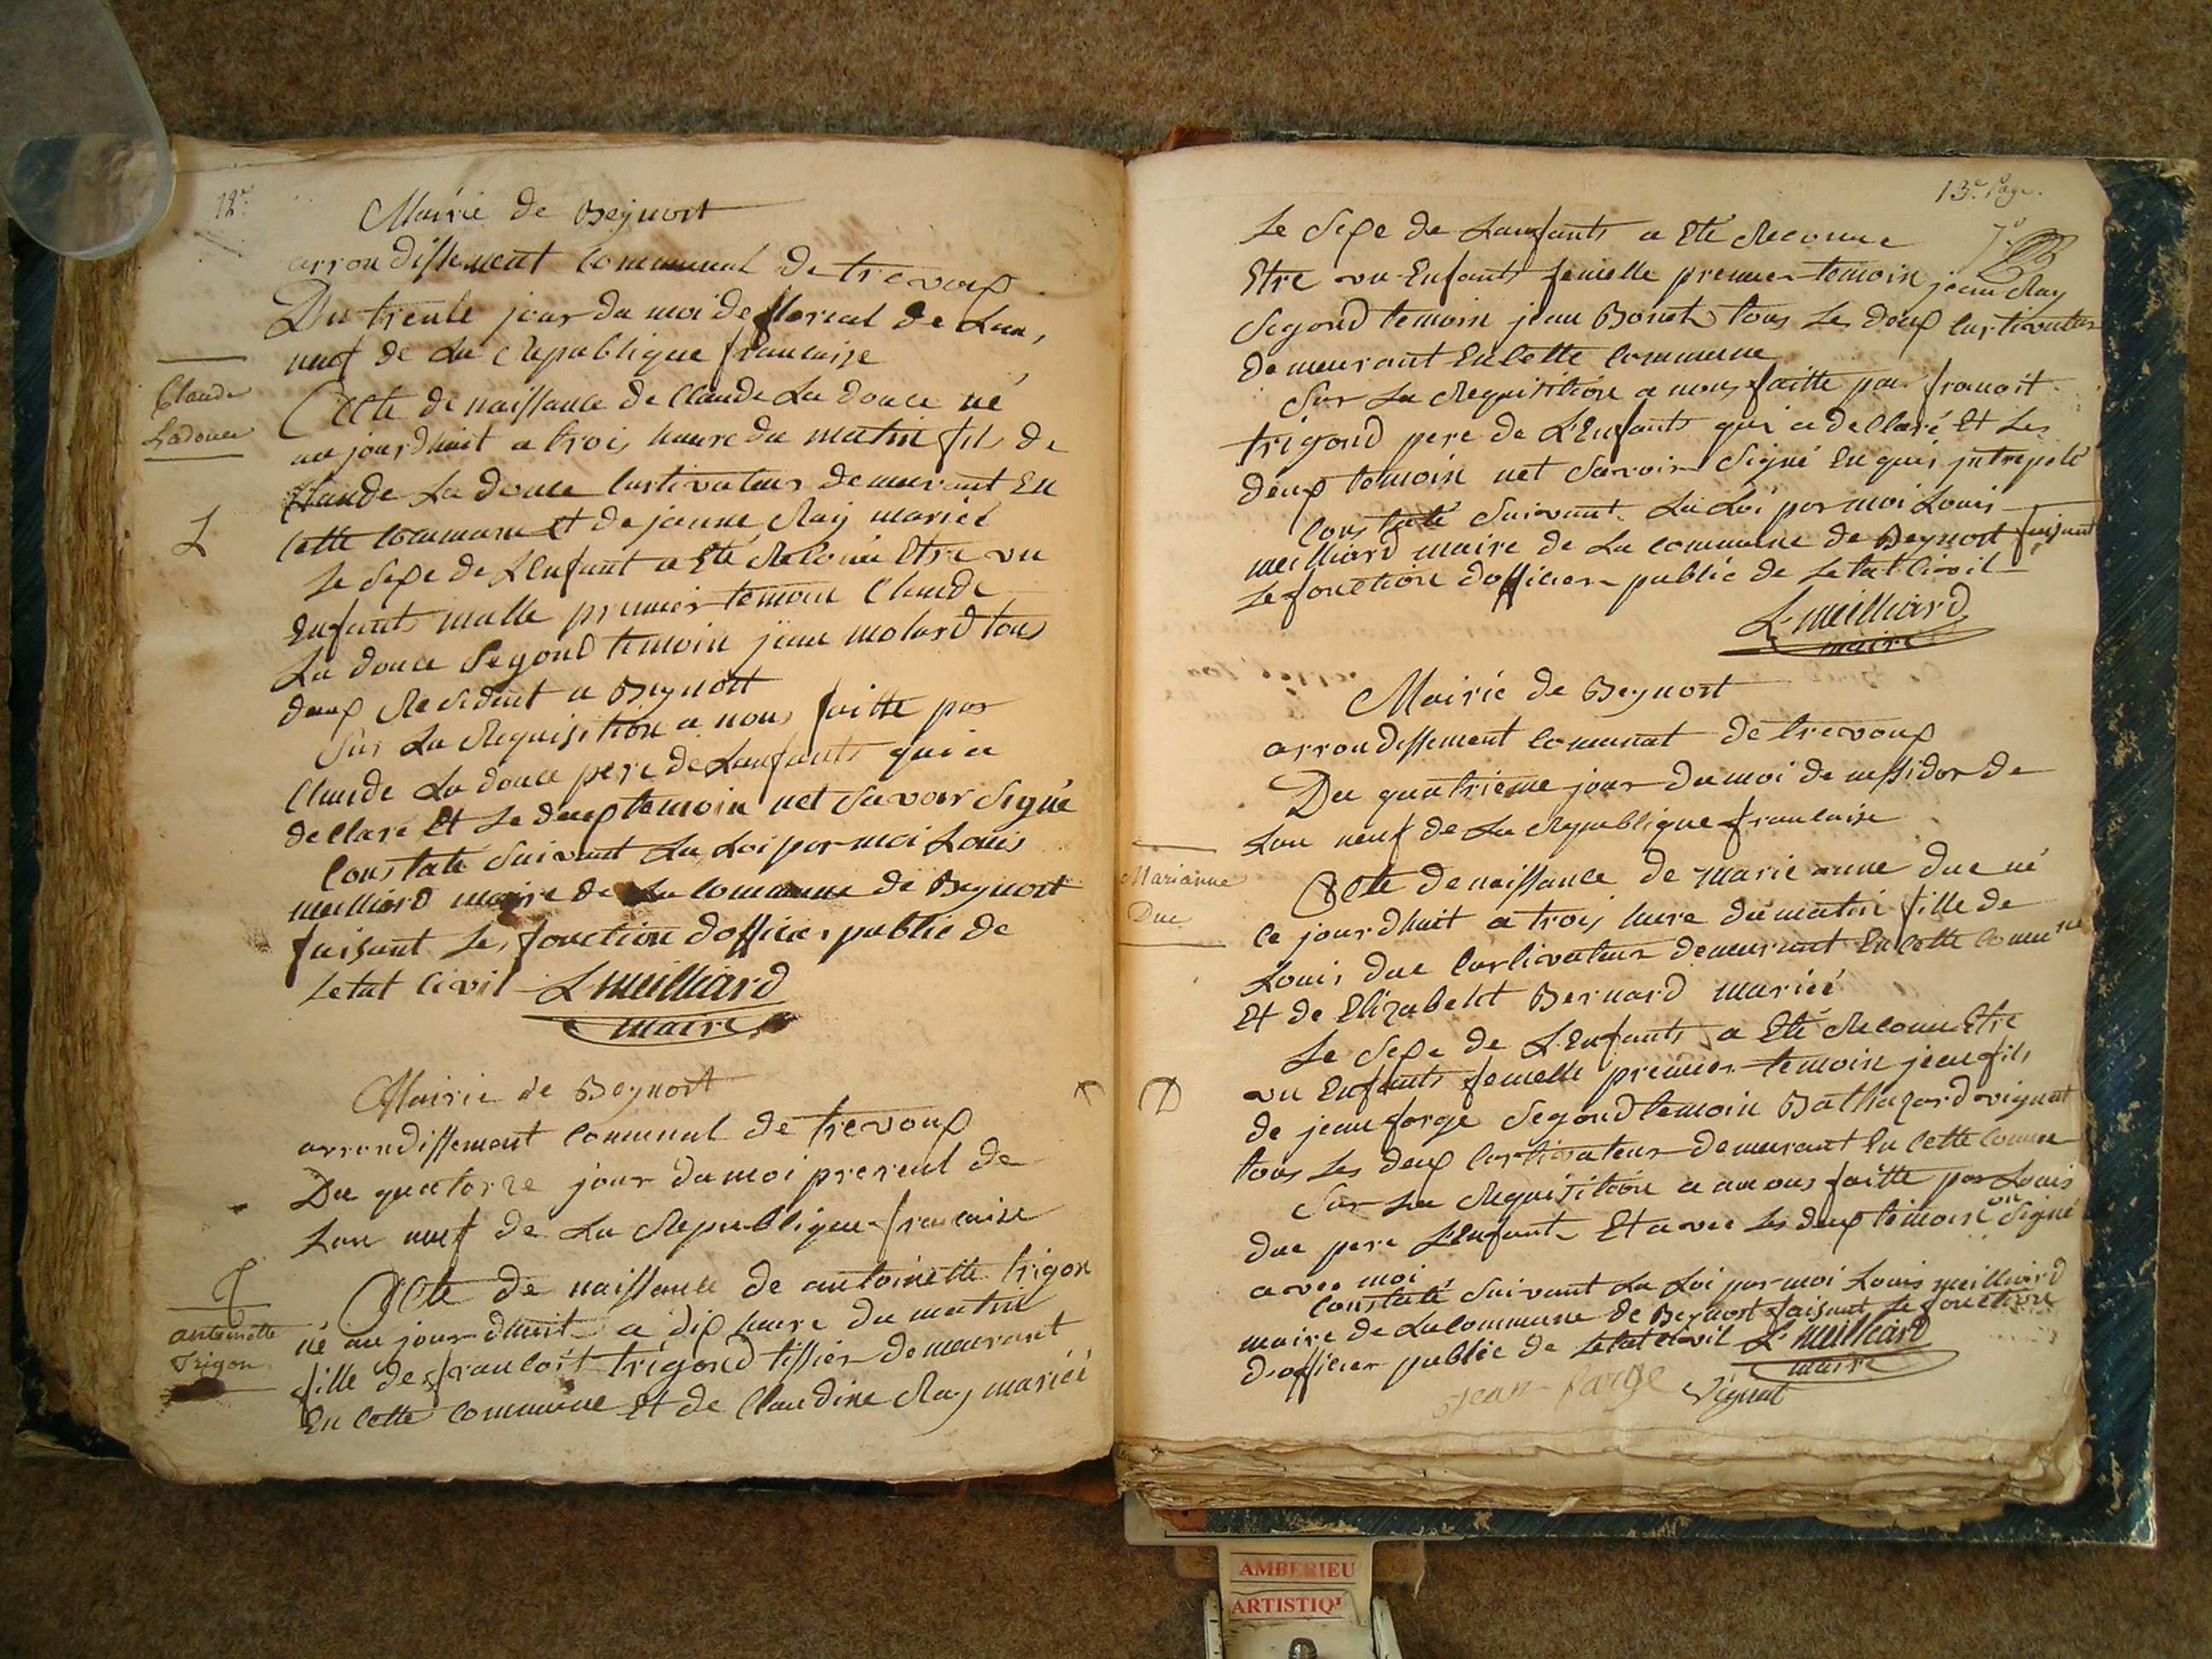 12e
Mairie de Beynost
arrondissement communal de trevoux
Du trente jour du moi de florial de Lan,
neuf de La Republique francaise
Claude
Ladouce
Acte de naissance de Claude La douce né
aujourdhuit a trois heure du matin fils de
Claude La douce Cultivateur demeurant En
Cette Commune Et de jeanne Ray mariéé
L
Le Sexe de LEnfant a Eté Reconu Etre un
Enfants malle premier temoin Claude
La douce Segond temoin jean molard tous
deux Residant a Beynost
Sur La Requisition a nous faitte par
Claude La douce pere de Lenfants qui a
dellaré Et Le deux temoin net Savoir Signé
Constate Suivant La Loi par moi Louis
meilliard maire de La Commune de Beynost
faisant Les fonction dofficier public de
Letat Civil L meilliard
maire
Mairie de Beynost
arrondissement Communal de trevoux
Du quatorze jour du moi present de
Lan neuf de La Republique francaise
antoinette
Trigon
Acte de naissance de antoinette trigon
né au jourdhuit a dix heure du matin
fille de francoit trigond tissier demeurant
En Cette Commune Et de Claudine Ray mariéé
13e Page.
Le Sexe de Lenfants a Eté Reconue
Etre un Enfants femelle premier temoin jean Ray
Segond temoin jean Bonet tous Les deux Cultivateur
demeurant En Cette Commune
Sur La Requisition a nous faitte par francoit
trigond pere de L'Enfants qui a dellaré Et Les
deux temoin net Savoir Signé En quis jntrepelé
Constaté Suivant La Loi par moi Louis
meilliard maire de La Commune de Beynost faisant
Le fonction dofficier public de Letat Civil
L. meilliard
maire
Mairie de Beynost
arrondissement Comunat de trevoux
Du quatrieme jour du moi de messidor de
Lan neuf de La Republique francaise
Marianne
Duc
Acte de naissance de marie anne duc né
Ce jourdhuit a trois heure du matin fille de
Louis duc Cultivateur demeurant En Cette Comune
Et de Elizabeht Bernard mariéé
Le Sexe de L'Enfants a Eté Reconu Etre
D
un Enfants femelle premier temoin jean fils
de jean forge Segond temoin Bathazard vignat
tous Les deux Cultivateur demeurant En Cette Comune
Sur La Requisition a nous faitte par Louis
duc pere LEnfant Et avec Les deux temoin on Signé
avec moi
Constaté Suivant La Loi par moi Louis meilliard
maire de La Commune de Beynost faisant Le fonction
dofficier public de Letat Civil L. meilliard
maire
Jean farge Vignat
AMBERIEU
ARTISTIQ